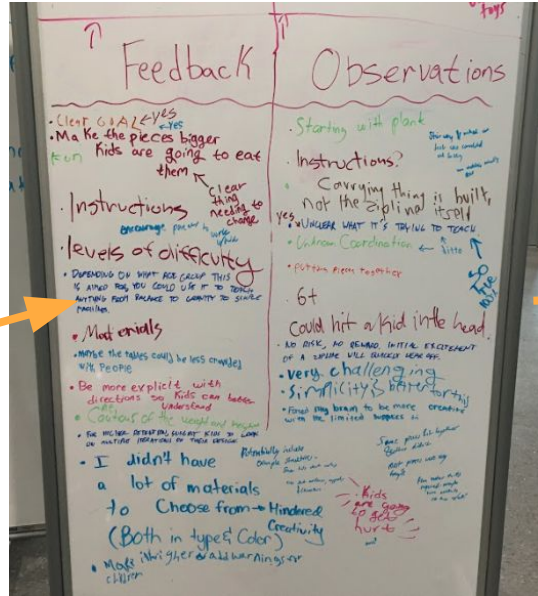 toys
Feedback
• Clear GOAL ← yes
← yes
• Make the pieces bigger
Kids are going to eat
them
clear
thing
needing to
change
• Instructions
encourage
• levels of difficulty
• DEPENDING ON WHAT AGE GROUP THIS
IS AIMED FOR, YOU COULD USE IT TO TEACH
ANYTHING FROM BALANCE TO GRAVITY TO SIMPLE
MACHINES.
• Materials
• Maybe the tables could be less crowded
with PEOPLE
• Be more explicit with
directions so kids can better
understand
• I didn't have
a lot of materials
to choose from → Hindered
Creativity
(Both in types & Color)
• Make it higher & add warnings for
children
Observations
• Starting with plant
• Instructions?
• Carrying thing is built,
not the zipline itself
yes
• UNCLEAR WHAT IT'S TRYING TO TEACH
• Unknown Coordination ←
• putting pieces together
SO
true
• 6+
Could hit a kid in the head.
NO RISK, NO REWARD. INITIAL EXCITEMENT
OF A ZIPLINE WILL QUICKLY WEAR OFF.
• very challenging
• Simplicity is better for this
• Forced my brain to be more creative
with the limited supplies
Potentially include
• Kids
are going
to get
hurt